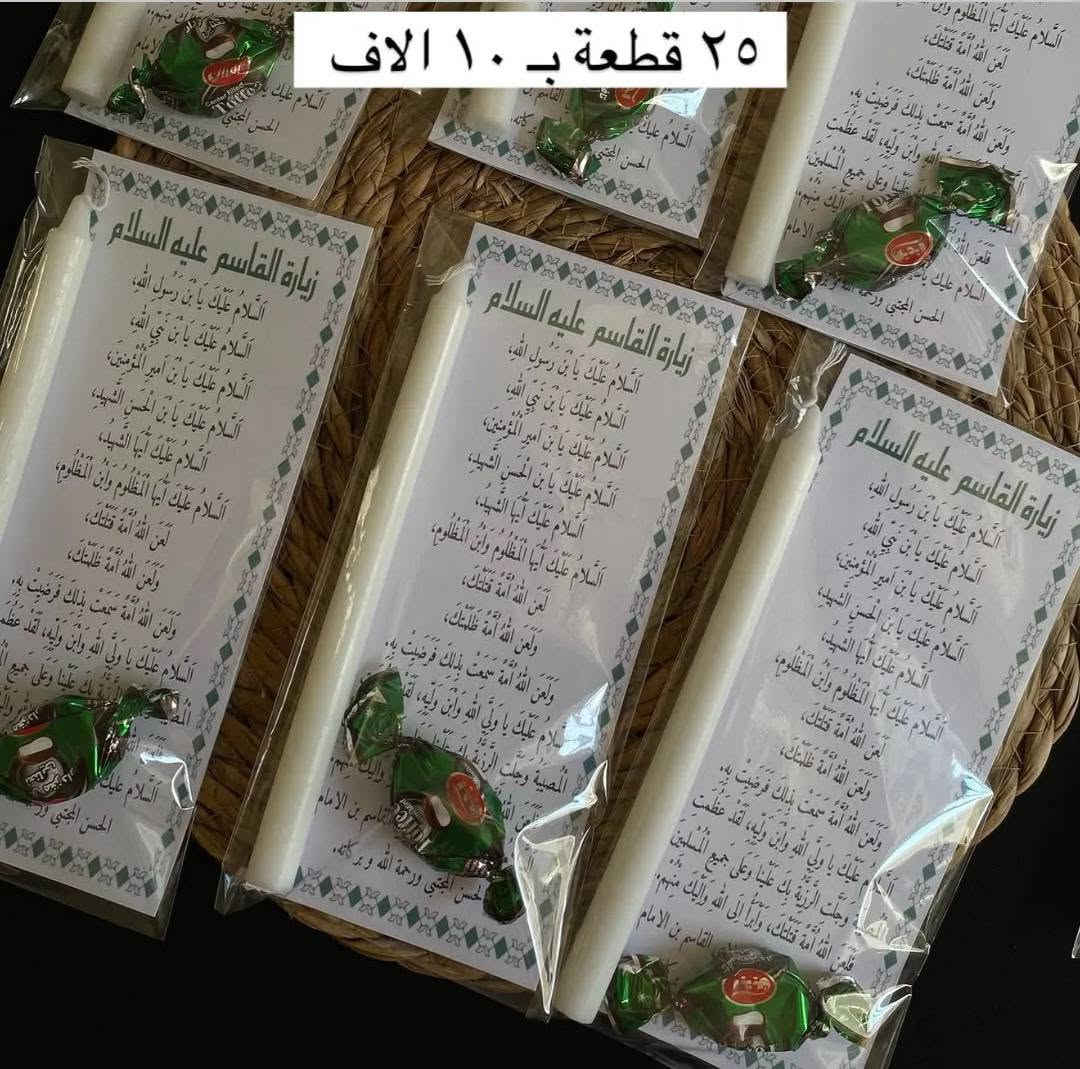 ٢٥ قطعة بـ ١٠ الاف
زيارة القاسم عليه السلام
اَلسَّلامُ عَلَيْكَ يَا بْنَ رَسُولِ اللهِ،
اَلسَّلامُ عَلَيْكَ يَا بْنَ نَبِيِّ اللهِ،
اَلسَّلامُ عَلَيْكَ يَا بْنَ اَمِيرِ الْمُؤْمِنِينَ،
اَلسَّلامُ عَلَيْكَ يَا بْنَ الْحَسَنِ الشَّهِيدِ،
اَلسَّلامُ عَلَيْكَ اَيُّهَا الشَّهِيدُ،
اَلسَّلامُ عَلَيْكَ اَيُّهَا الْمَظْلُومُ وَابْنُ الْمَظْلُومِ،
لَعَنَ اللهُ اُمَّةً قَتَلَتْكَ،
وَلَعَنَ اللهُ اُمَّةً ظَلَمَتْكَ،
وَلَعَنَ اللهُ اُمَّةً سَمِعَتْ بِذلِكَ فَرَضِيَتْ بِهِ،
اَلسَّلامُ عَلَيْكَ يَا وَلِيَّ اللهِ وَابْنَ وَلِيِّهِ، لَقَدْ عَظُمَتِ
الْمُصِيبَةُ وَجَلَّتِ الرَّزِيَّةُ بِكَ عَلَيْنَا وَعَلَى جَمِيعِ الْمُسْلِمِينَ،
فَلَعَنَ اللهُ اُمَّةً قَتَلَتْكَ، وَاَبْرَأُ اِلَى اللهِ وَاِلَيْكَ مِنْهُمْ،
السلام عليك
القاسم بن الامام
الحسن المجتبى ورحمة الله وبركاته.